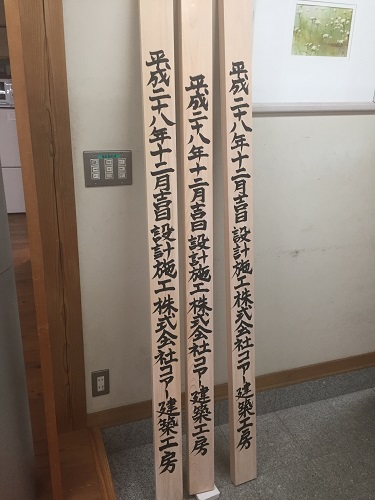 平成二十八年十二月吉日 設計施工 株式会社コアー建築工房
平成二十八年十二月吉日 設計施工 株式会社コアー建築工房
平成二十八年十二月吉日 設計施工 株式会社コアー建築工房